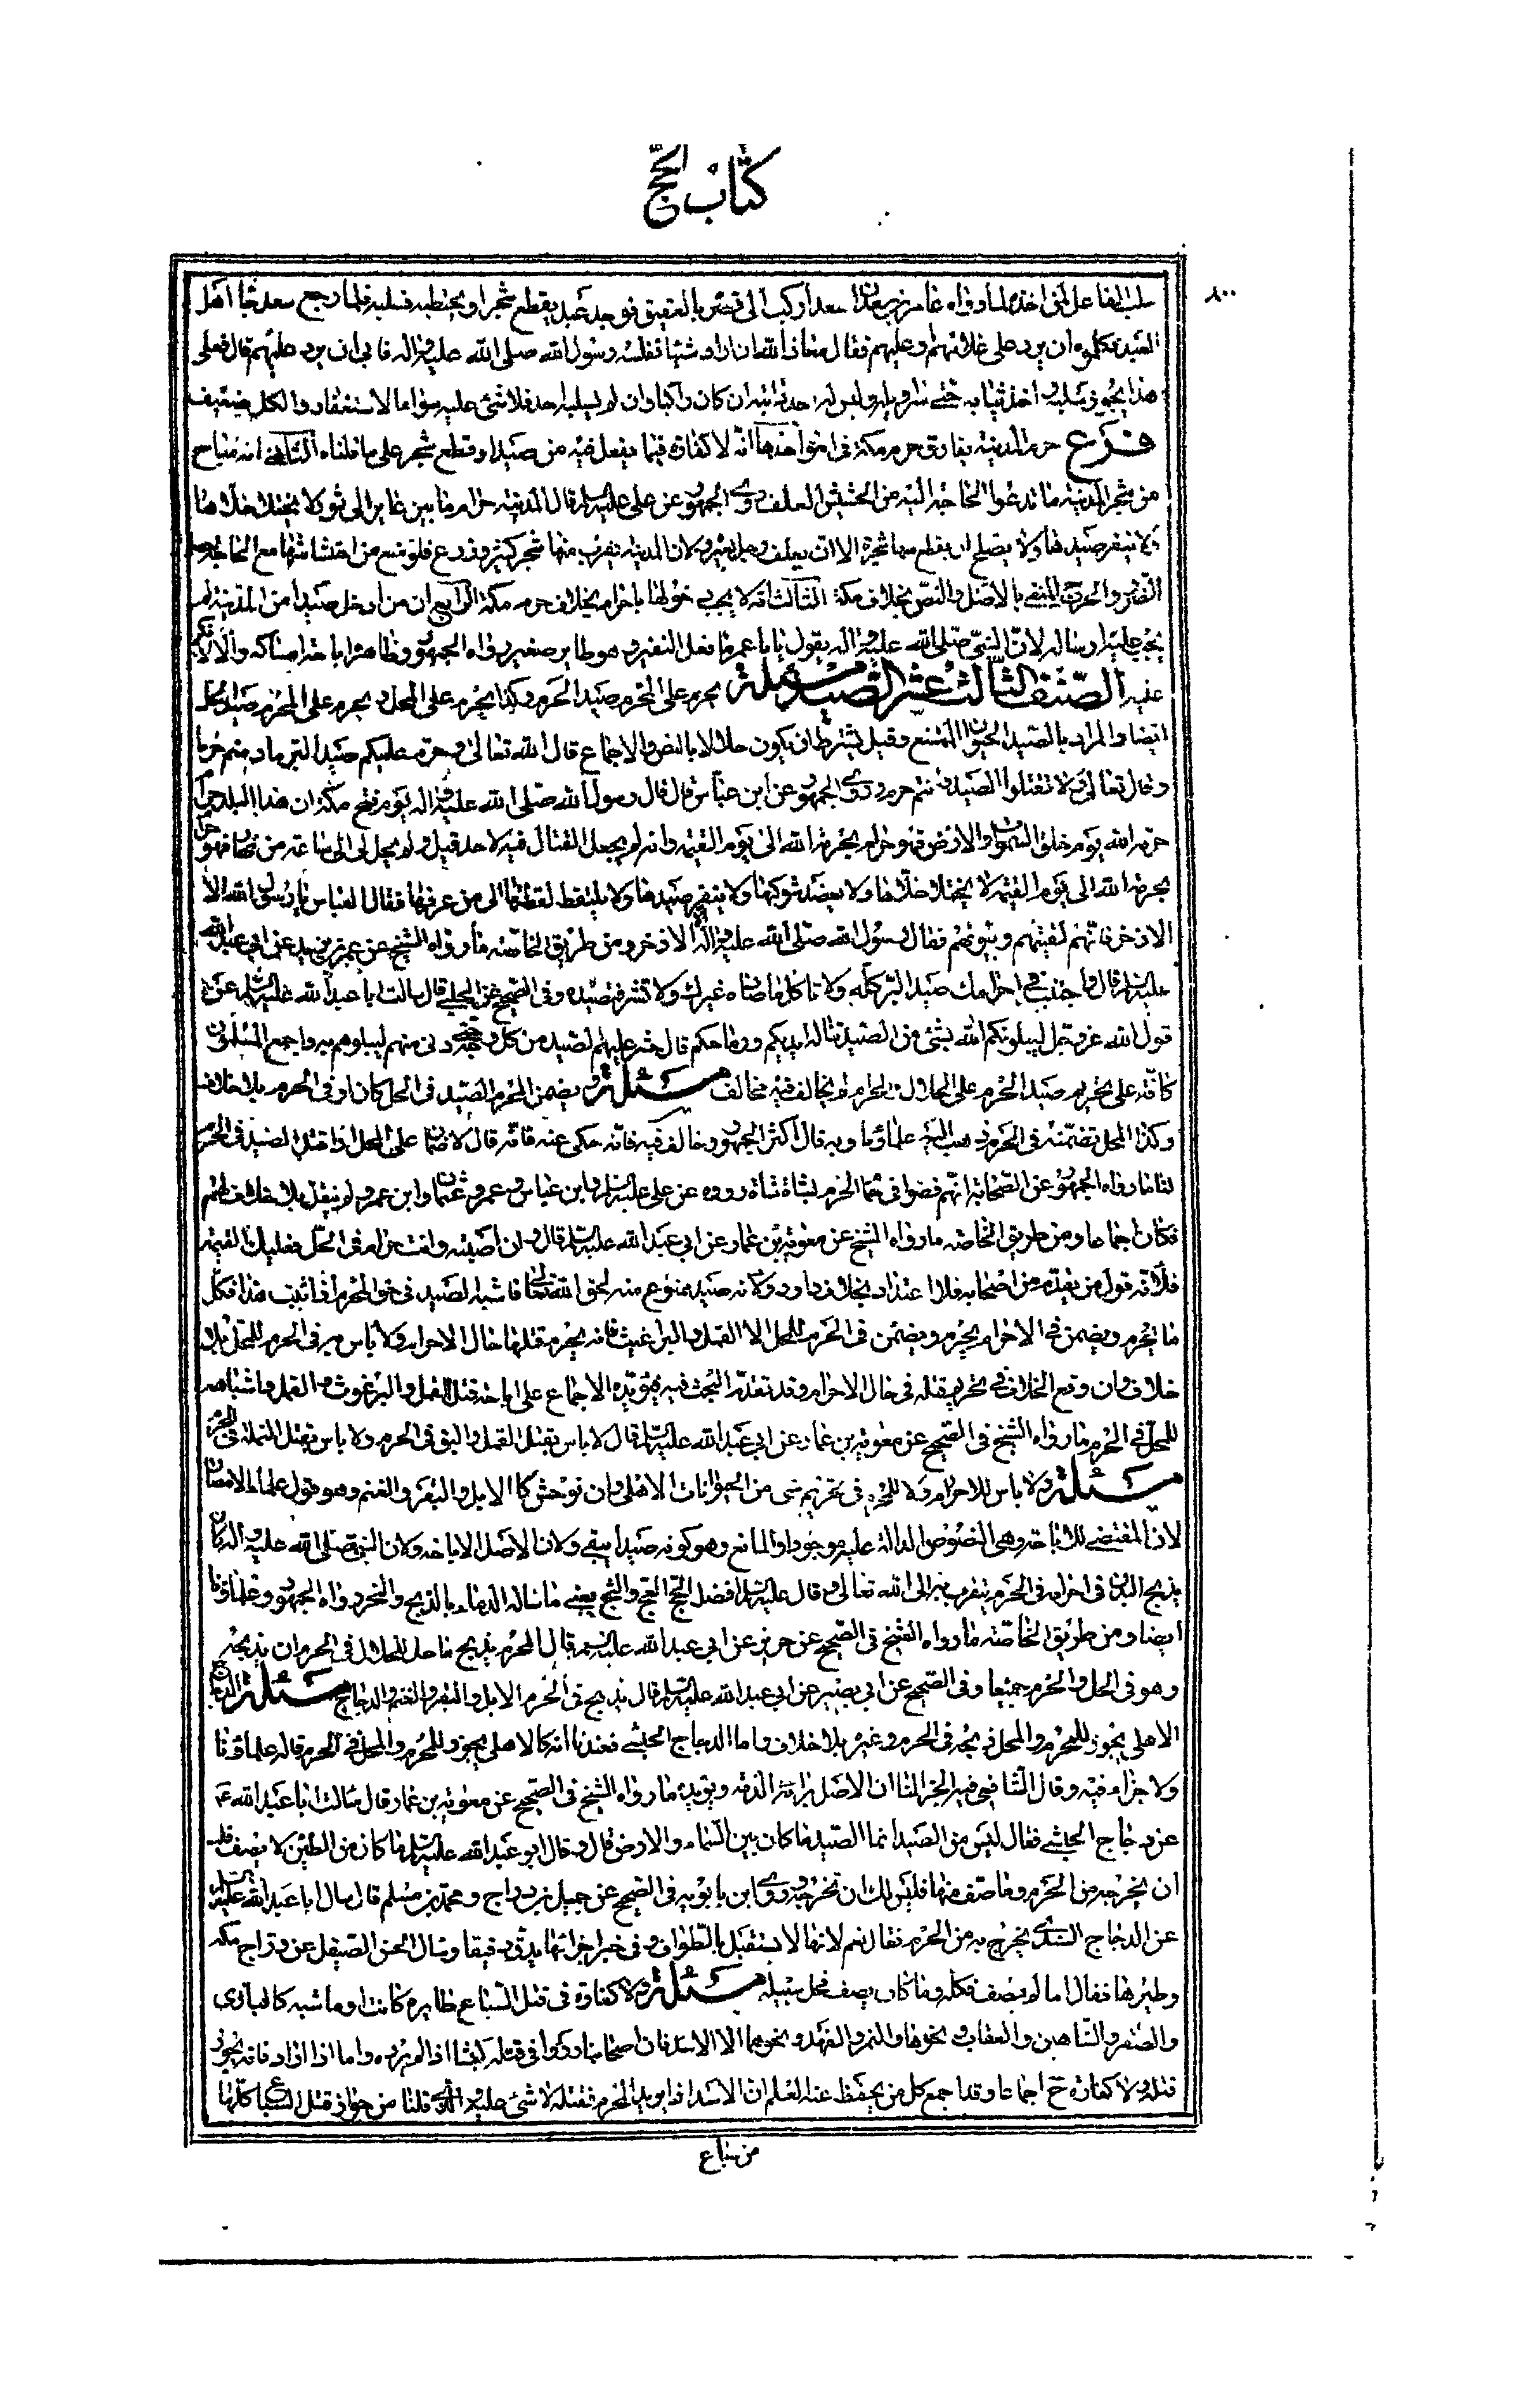 كتاب الحج
٨٠٠
سلب الفاعل لمن اخذه لما رواه عامر بن سعد ان سعدا ركب الى قصره بالعقيق فوجد عبدا يقطع شجرا او يخبطه فسلبه فلما رجع سعد جاء اهل
العبد فكلموه ان يرد على غلامهم او عليهم فقال معاذ الله ان ارد شيئا نفلنيه رسول الله صلى الله عليه واله فابى ان يرد عليهم قال فعلى
هذا يجوز سلبه اخذ ثيابه حتى سراويله وليس له اخذ دابته ان كان راكبا وان لم يسلبه احد فلا شئ عليه سوى الاستغفار والكل ضعيف
فرع حرم المدينة يفارق حرم مكة في امور احدها انه لا كفارة فيما يفعل فيه من صيد او قطع شجر على ما قلناه الثاني انه مباح
من شجر المدينة ما تدعوا الحاجة اليه من الحشيش للعلف روى الجمهور عن علي عليه السلام قال المدينة حرام ما بين عاير الى ثور لا يختلى خلاها
ولا ينفر صيدها ولا يصلح ان يقطع منها شجرة الا ان يعلف رجل بعيره ولان المدينة يقرب منها شجر كثير وزرع فلو منع من احتشاشها مع الحاجة
الضرر والحرج المنفى بالاصل والنص بخلاف مكة الثالث انه لا يجب دخولها باحرام بخلاف حرم مكة الرابع ان من ادخل صيدا من المدينة لم
يجب عليه ارساله لان النبي صلى الله عليه واله يقول يا با عمير ما فعل النغير وهو طاير صغير رواه الجمهور وظاهره اباحة امساكه والا لانكر
عليه الصنف الثالث عشر الصيد مسئلة يحرم على المحرم صيد الحرم وكذا يحرم على المحل و يحرم على المحرم صيد الحل
ايضا والمراد بالصيد الحيوان الممتنع وقيل يشترط ان يكون حلالا بالنص والاجماع قال الله تعالى وحرم عليكم صيد البر ما دمتم حرما
وقال تعالى لا تقتلوا الصيد وانتم حرم وروى الجمهور عن ابن عباس قال قال رسول الله صلى الله عليه واله يوم فتح مكة ان هذا البلد حرام
حرمه الله يوم خلق السموات والارض فهو حرام بحرمة الله الى يوم القيمة وانه لم يحل القتال فيه لاحد قبلي ولم يحل لي الا ساعة من نهار فهو حرام
بحرمة الله الى يوم القيمة لا يختلى خلاها ولا يعضد شوكها ولا ينفر صيدها ولا يلتقط لقطتها الا من عرفها فقال العباس يا رسول الله الا
الاذخر فانه لقينهم وبيوتهم فقال رسول الله صلى الله عليه واله الا الاذخر ومن طريق الخاصة ما رواه الشيخ عن عمر بن يزيد عن ابي عبد الله
عليه السلام قال واجتنب في احرامك صيد البر كله ولا تاكل ما صاده غيرك ولا تشر في صيده وفي الصحيح عن الحلبي قال سالت ابا عبد الله عليه السلام عن
قول الله عز وجل ليبلونكم الله بشئ من الصيد تناله ايديكم ورماحكم قال حشر عليهم الصيد من كل وجه حتى دنى منهم ليبلوهم به واجمع المسلمون
كافة على تحريم صيد الحرم على الحلال والحرام لم يخالف فيه مخالف مسئلة ويضمن المحرم الصيد في الحل كان او في الحرم بلا خلاف
وكذا المحل تضمنه في الحرم ذهب اليه علماؤنا وبه قال اكثر الجمهور وخالف فيه داود فانه حكى عنه قال لا ضمان على المحل اذا قتل الصيد في الحرم
لنا ما رواه الجمهور عن الصحابة انهم قضوا في حمام الحرم بشاة شاة رووه عن علي عليه السلام وابن عباس وعمر وعثمان وابن عمر ولم ينقل بلا خلاف لهم
فكان اجماعا ومن طريق الخاصة ما رواه الشيخ عن معوية بن عمار عن ابي عبد الله عليه السلام قال وان اصبته وانت حلال في الحرم فعليك القيمة
فلانه قول من تقدم من اصحابه فلا اعتداد بخلاف داود ولانه صيد ممنوع منه لحق الله تعالى فاشبه الصيد في حق المحرم اذا ثبت هذا فكل
ما يحرم ويضمن في الاحرام يحرم ويضمن في الحرم للمحل الا القمل والبراغيث فانه يحرم قتلها حال الاحرام ولا باس به في الحرم للمحل بلا
خلاف وان وقع الخلاف في تحريم قتله في حال الاحرام وقد تقدم البحث فيه ويؤيده الاجماع على اباحة قتل القمل والبرغوث و النمل واشباهه
للمحل في الحرم ما رواه الشيخ في الصحيح عن معوية بن عمار عن ابي عبد الله عليه السلام قال لا باس بقتل القمل والبق في الحرم ولا باس بقتل النملة في الحرم
مسئلة ولا باس للاحرام ولا للحرم في تحريم شئ من الحيوانات الاهلى وان توحش كالابل والبقر والغنم وهو قول علماء الامصار
لان المقتضى للاباحة وهي النصوص الدالة عليه موجود والمانع وهو كونه صيدا منتفى ولان الاصل الاباحة ولان النبي صلى الله عليه واله كان
يذبح البدن في احرامه في الحرم يتقرب به الى الله تعالى وقال عليه السلام افضل الحج العج والثج يعني ما ساله الدماء بالذبح والنحر رواه الجمهور وعلماؤنا
ايضا ومن طريق الخاصة ما رواه الشيخ في الصحيح عن حريز عن ابي عبد الله عليه السلام قال المحرم يذبح ما حل للحلال في الحرم ان يذبحه
وهو في الحل والحرم جميعا وفي الصحيح عن ابي بصير عن ابي عبد الله عليه السلام قال يذبح في الحرم الابل والبقر والغنم والدجاج مسئلة الدجاج
الاهلي يجوز للمحرم والمحل ذبحه في الحرم وغيره بلا خلاف واما الدجاج الحبشي فعندنا انه كالاهلي يجوز للمحرم والمحل في الحرم قاله علماؤنا
ولا جزاء فيه وقال الشافعي فيه الجزاء لنا ان الاصل براءة الذمة ويؤيده ما رواه الشيخ في الصحيح عن معوية بن عمار قال سالت ابا عبد الله ع
عن دجاج الحبشي فقال ليس من الصيد انما الصيد ما كان بين السماء والارض قال وقال ابو عبد الله عليه السلام ما كان من الطير لا يصف فلك
ان تخرجه من الحرم وما صف منها فليس لك ان تخرجه وروى ابن بابويه في الصحيح عن جميل بن دراج ومحمد بن مسلم قال سال ابا عبد الله عليه السلام
عن الدجاج السندي يخرج به من الحرم فقال نعم لانها لا تستقل بالطيران وفي خبر اخر انها تدف دفيفا وسال الحسن الصيقل عن دراج مكة
وطيرها فقال اما لم يصف فكله وما كان يصف فخل سبيله مسئلة ولا كفارة في قتل السباع طايرة كانت او ماشية كالبازي
والصقر والشاهين والعقاب ونحوها والنمر والفهد ونحوهما الا الاسد فان اصحابنا رووا في قتله كبشا اذا لم يرده واما اذا اراده فانه يجوز
قتله ولا كفارة ح اجماعا وقد اجمع كل من يحفظ عنه العلم ان الاسد اذا بدا المحرم فقتله لا شئ عليه والذي قلنا من جواز قتل السباع كلها
من سباع